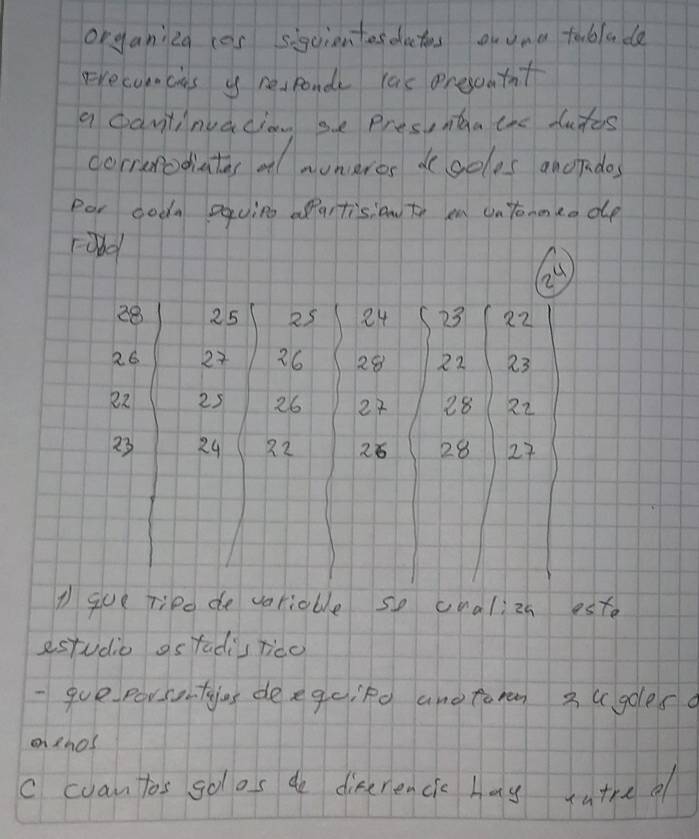 organiza los siguientes datos en una tabla de
Frecuencias y responde las
a cantinuacion se Presentan los datos
numeros de goles anotados
Por cada equipo en un torneo de
24
28 25 25 24 23 22
26 27 26 28 22 23
22 25 26 27 28 22
23 24 22 26 28 27
1) que Tipo de variable se analiza este
estudio estadistico
- que de equipo anotaron goles o
menos
C cuantos goles de diferencia hay entre el